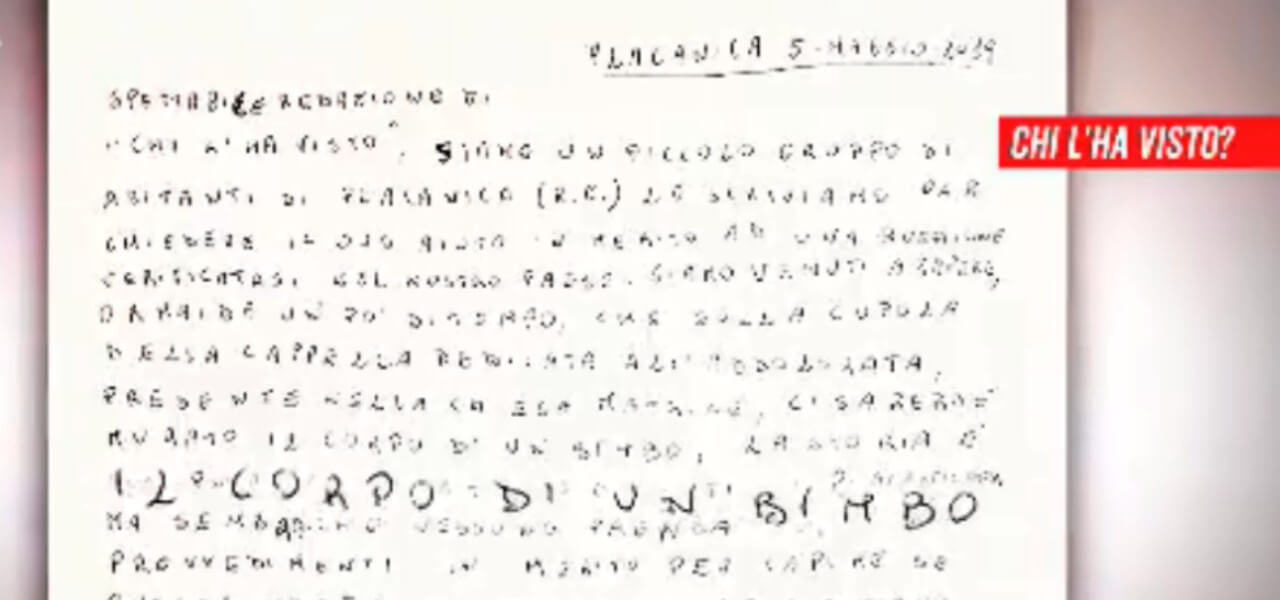 PLACANICA 5-MAGGIO-2019
SPETTABILE REDAZIONE DI
CHI L'HA VISTO?
"CHI L'HA VISTO". SIAMO UN PICCOLO GRUPPO DI
ABITANTI DI PLACANICA (R.C.) LE SCRIVIAMO PER
CHIEDERE IL SUO AIUTO IN MERITO AD UNA QUESTIONE
VERIFICATASI NEL NOSTRO PAESE. SIAMO VENUTI A SAPERE,
ORMAI DA UN PO' DI TEMPO, CHE SULLA CUPOLA
DELLA CAPPELLA DEDICATA ALL'ADDOLORATA,
PRESENTE NELLA CHIESA MATRICE, CI SAREBBE
MURATO IL CORPO DI UN BIMBO, LA STORIA È
IL CORPO DI UN BIMBO
MA SEMBRA NESSUNO PRENDA
PROVVEDIMENTI IN MERITO PER CAPIRE SE